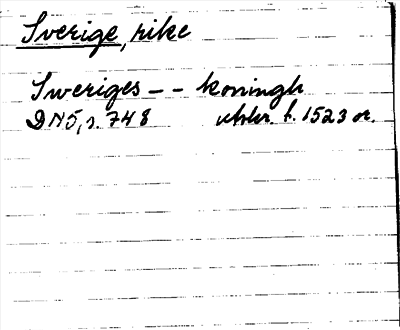 Sverige, rike
Sweriges -- koningh
DN5, s. 748 utskr. f. 1523 or.